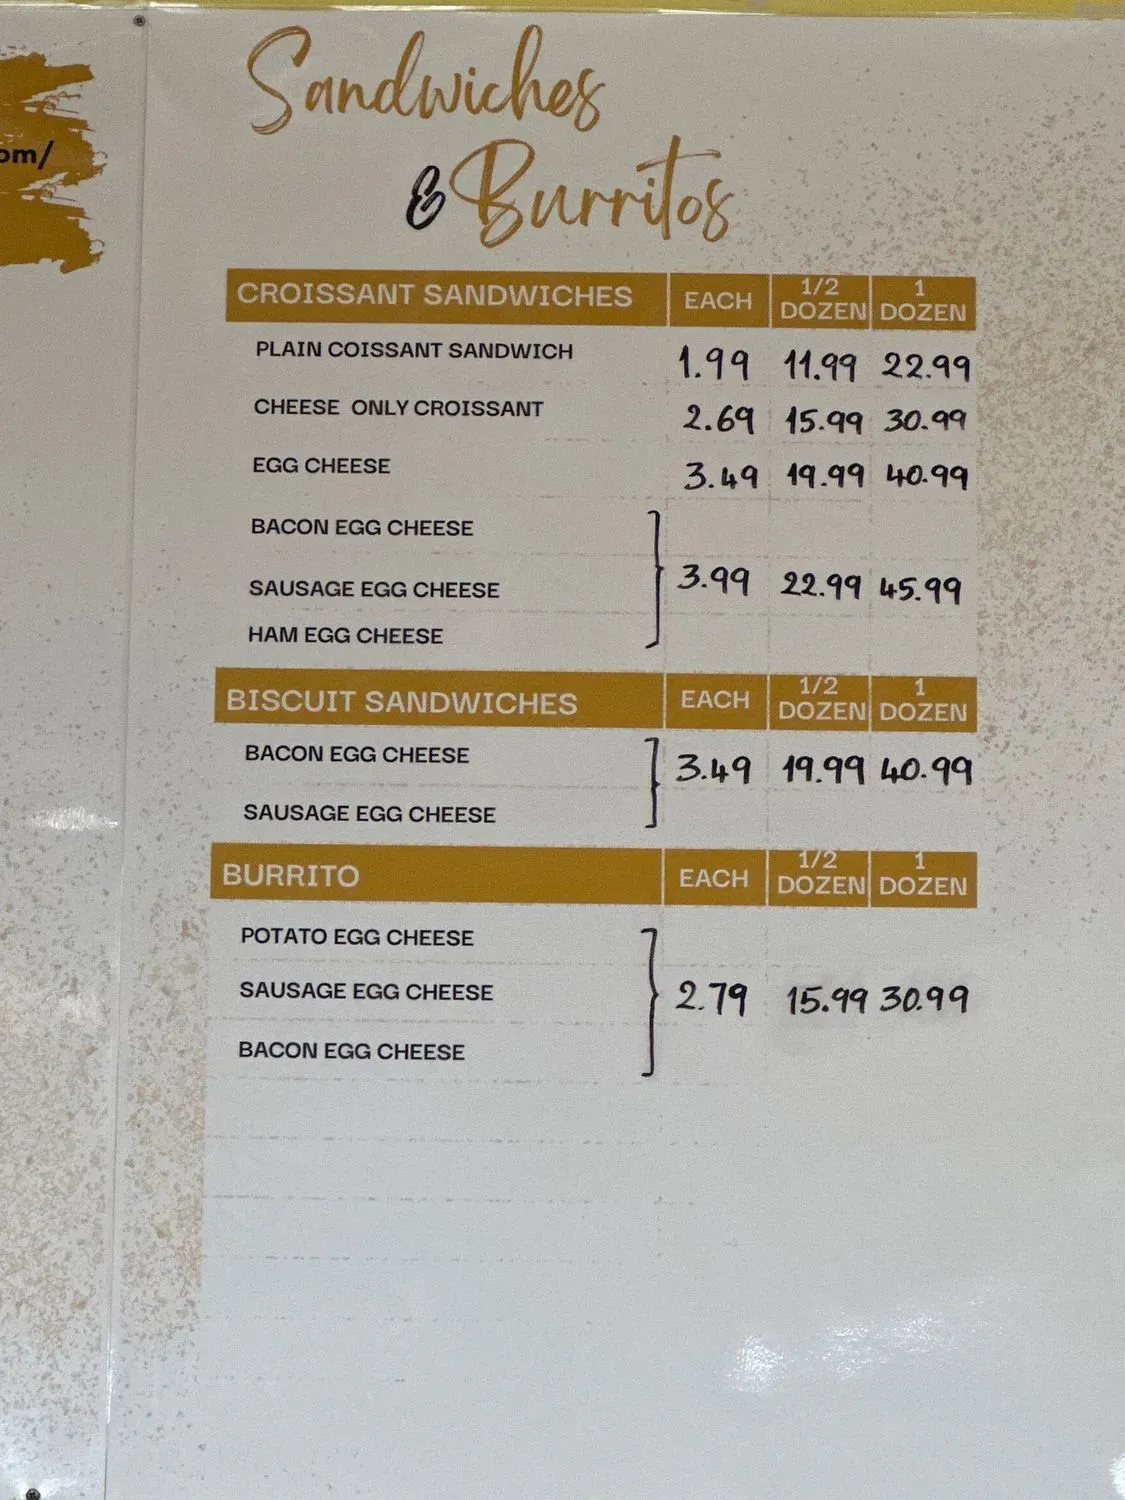 om/
Sandwiches
& Burritos
CROISSANT SANDWICHES EACH 1/2 DOZEN 1 DOZEN
PLAIN COISSANT SANDWICH 1.99 11.99 22.99
CHEESE ONLY CROISSANT 2.69 15.99 30.99
EGG CHEESE 3.49 19.99 40.99
BACON EGG CHEESE
SAUSAGE EGG CHEESE 3.99 22.99 45.99
HAM EGG CHEESE
BISCUIT SANDWICHES EACH 1/2 DOZEN 1 DOZEN
BACON EGG CHEESE 3.49 19.99 40.99
SAUSAGE EGG CHEESE
BURRITO EACH 1/2 DOZEN 1 DOZEN
POTATO EGG CHEESE
SAUSAGE EGG CHEESE 2.79 15.99 30.99
BACON EGG CHEESE